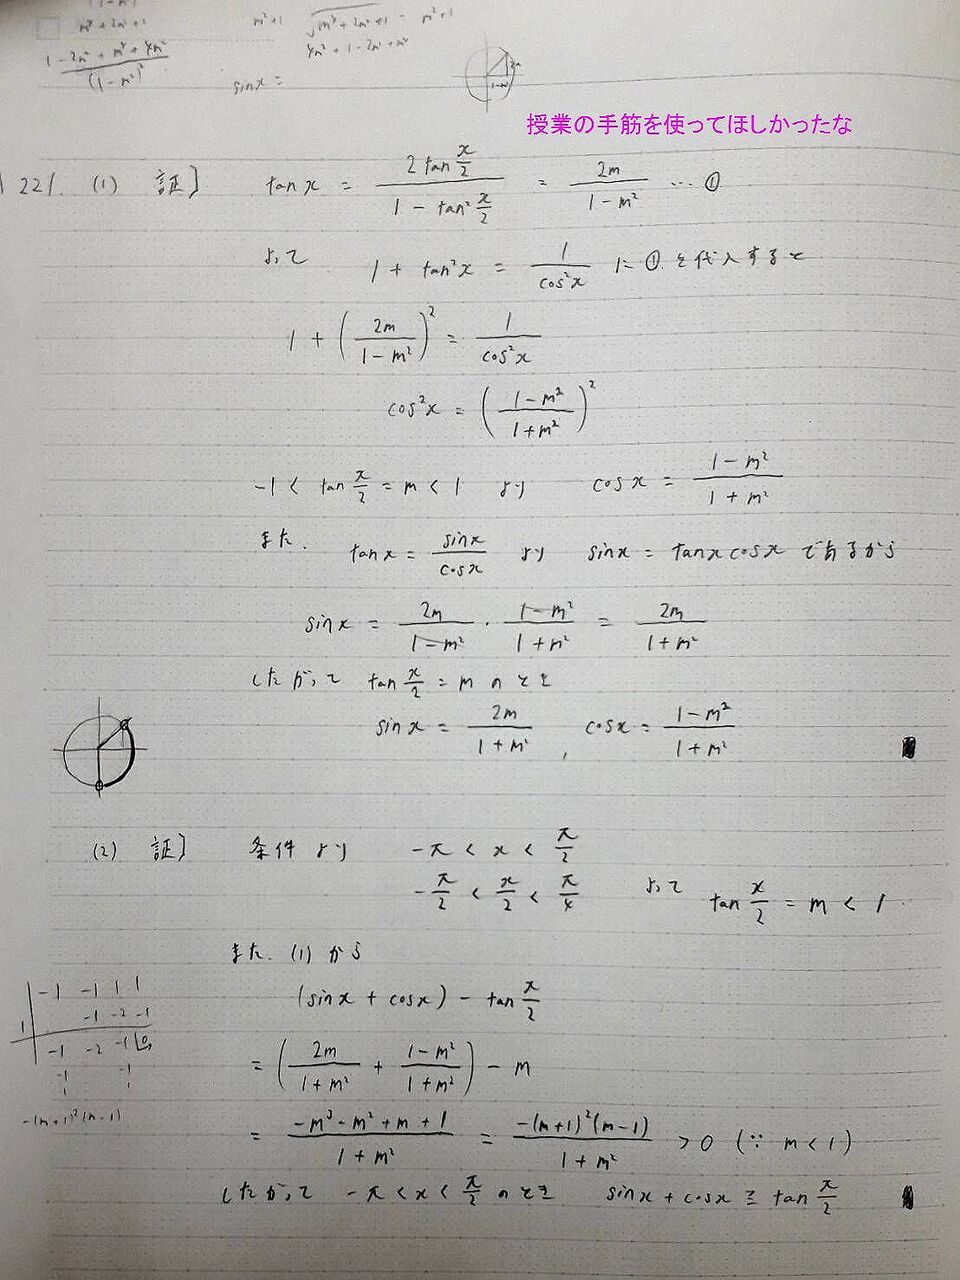 m⁴+2m²+1
m²+1
√(m⁴+2m²+1) = m²+1
4m²+1-2m²+m⁴
(1-2m²+m⁴+4m²)/(1-m²)²
sinx =
授業の手筋を使ってほしかったな
221. (1) 証] tanx = (2tan x/2)/(1-tan² x/2) = 2m/(1-m²) … ①
よって 1+tan²x = 1/cos²x に ① を代入すると
1+(2m/(1-m²))² = 1/cos²x
cos²x = ((1-m²)/(1+m²))²
-1 < tan x/2 = m < 1 より cosx = (1-m²)/(1+m²)
また. tanx = sinx/cosx より sinx = tanxcosx であるから
sinx = 2m/(1-m²)・(1-m²)/(1+m²) = 2m/(1+m²)
したがって tan x/2 = m のとき
sinx = 2m/(1+m²) , cosx = (1-m²)/(1+m²)
(2) 証] 条件より -π < x < π/2
-π/2 < x/2 < π/4 よって tan x/2 = m < 1.
また. (1)から
(sinx+cosx) - tan x/2
= (2m/(1+m²) + (1-m²)/(1+m²)) - m
= (-m³-m²+m+1)/(1+m²) = (-(m+1)²(m-1))/(1+m²) > 0 (∵ m<1)
したがって -π<x<π/2 のとき sinx+cosx ≧ tan x/2
-1 -1 1 1
1 -1 -2 -1
-1 -2 -1 0
-(m+1)²(m-1)